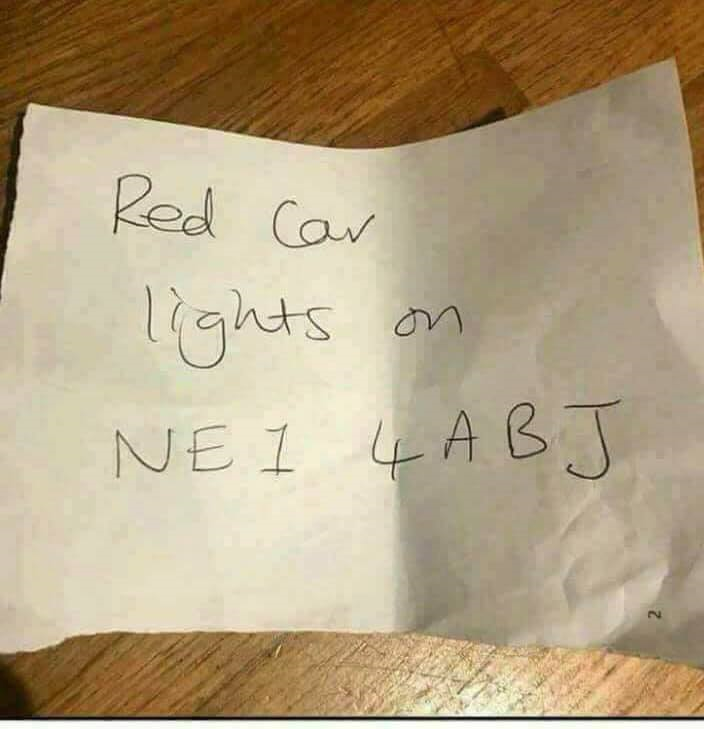 Red Car
lights on
NE1 4ABJ
2